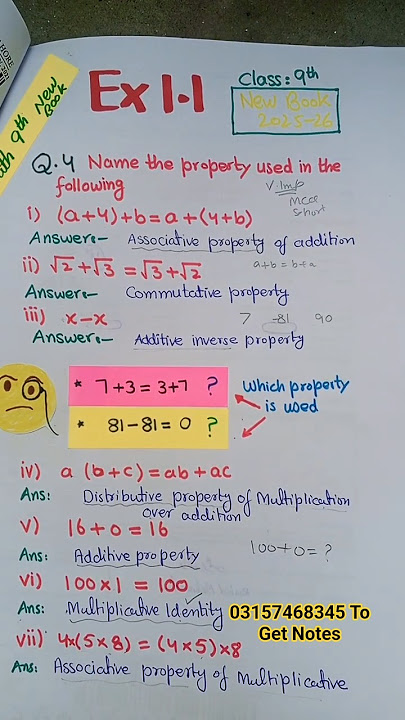 Class: 9th
Ex 1.1
New Book
2025-26
9th New
Book
Q.4 Name the property used in the
following
V.Imp
MCQ
Short
i) (a+4)+b=a+(4+b)
Answer:- Associative property of addition
ii) √2+√3 = √3+√2
a+b = b+a
Answer:- Commutative property
iii) x-x
7 -81 90
Answer:- Additive inverse property
* 7+3 = 3+7 ?
* 81-81 = 0 ?
Which property
is used
iv) a (b+c) = ab+ac
Ans: Distributive property of Multiplication
over addition
v) 16+0=16
100+0= ?
Ans: Additive property
vi) 100×1 = 100
Ans: Multiplicative Identity
03157468345 To
Get Notes
vii) 4×(5×8) = (4×5)×8
Ans: Associative property of Multiplicative